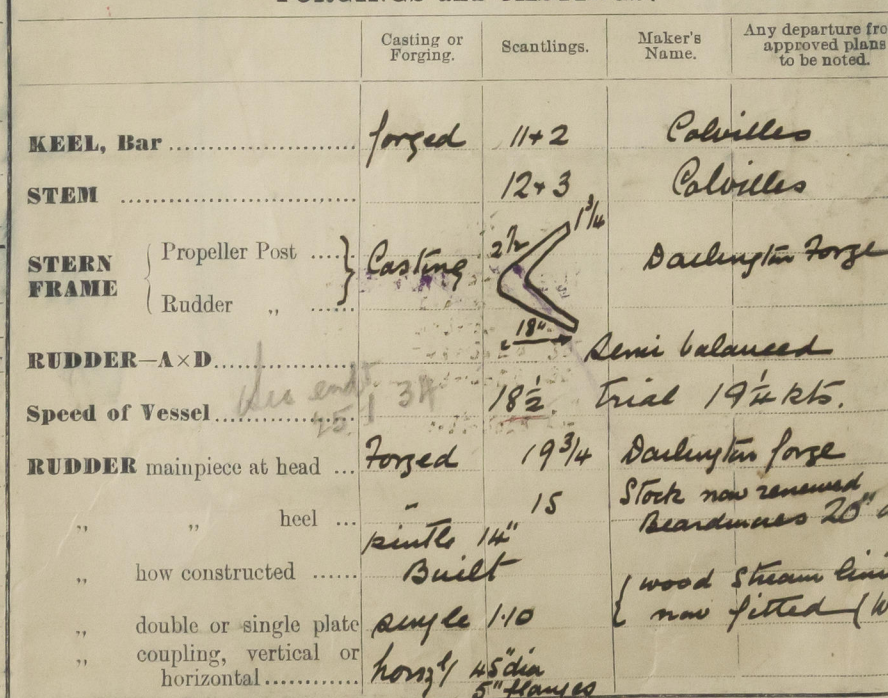 Casting or Forging. Scantlings. Maker's Name. Any departure from approved plans to be noted.
KEEL, Bar forged 11+2 Colvilles
STEM 12+3 Colvilles
1 3/4
STERN FRAME { Propeller Post } Casting 2 1/2 Darlington Forge
Rudder „
18"
RUDDER—A×D semi balanced
Speed of Vessel 18 1/2. Trial 19 1/4 kts.
25.1.34
RUDDER mainpiece at head ... Forged 19 3/4 Darlington forge
„ „ heel ... „ 15 Stock now renewed
pintle 14" Beardmores 20"
„ how constructed ...... Built { wood Stream
„ double or single plate single 1.10 now fitted
„ coupling, vertical or horizontal horizl/ 45" dia
5" flanges